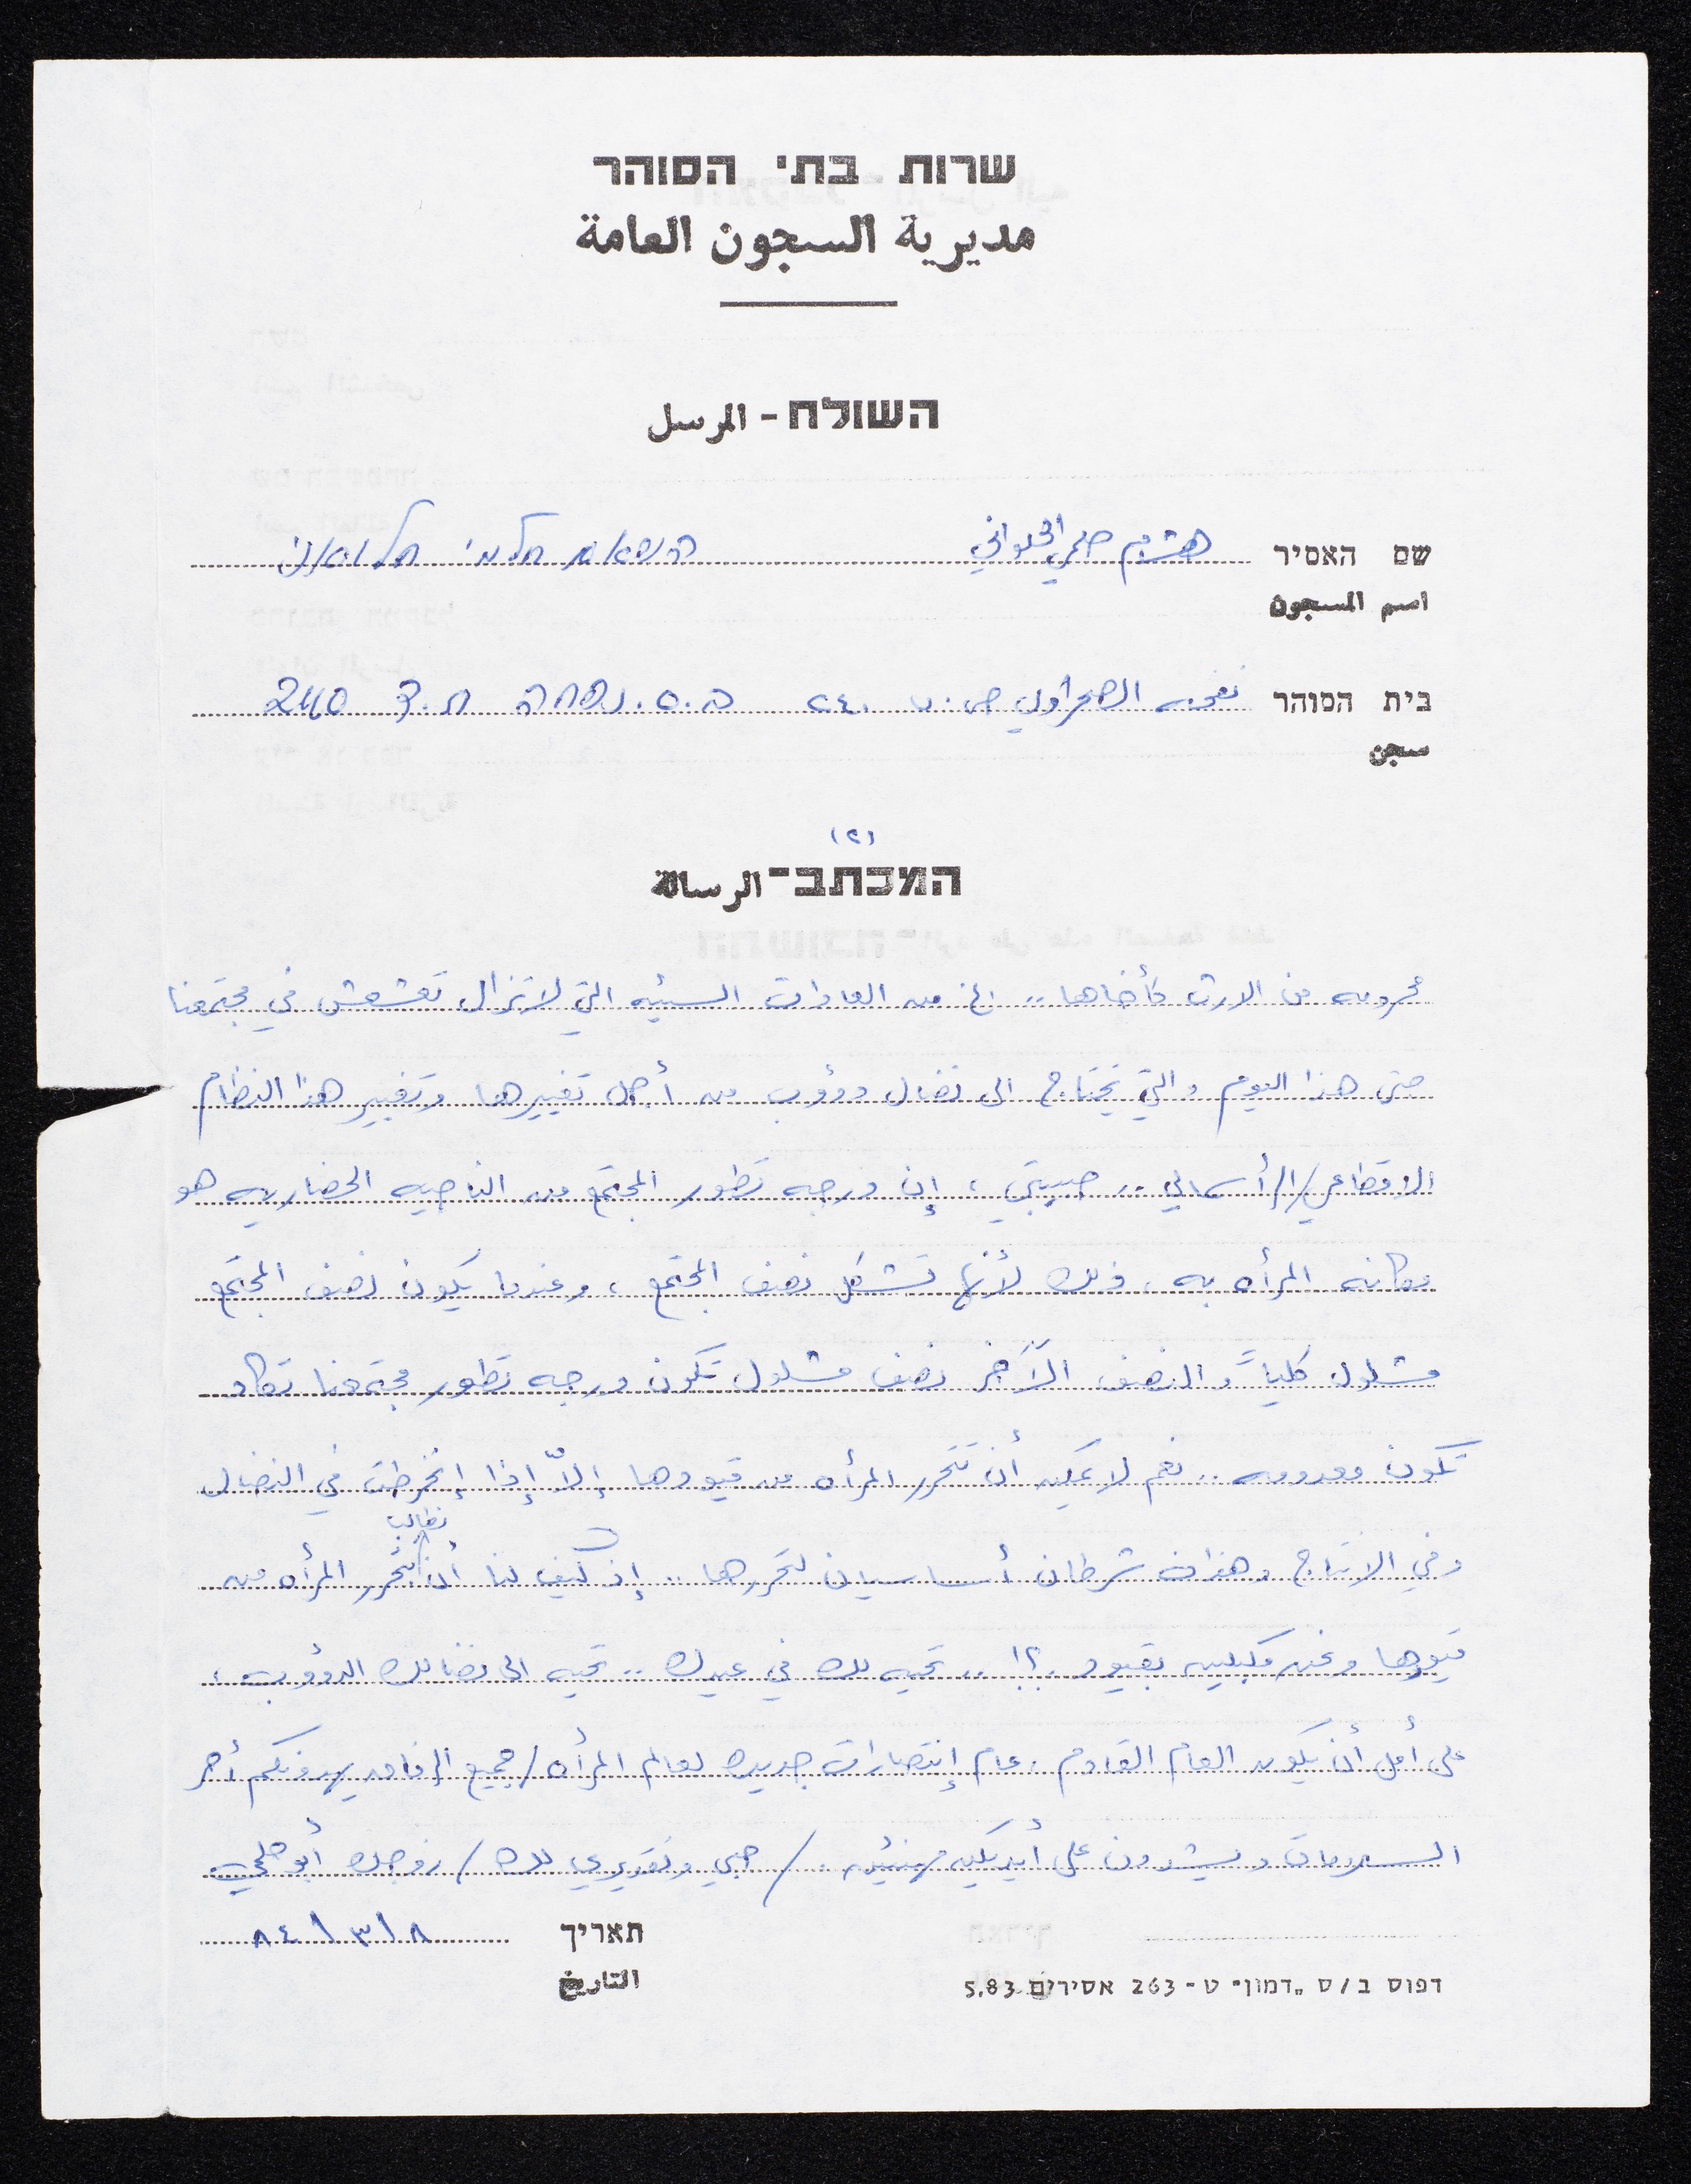 שרות בתי הסוהר
مديرية السجون العامة
השולח - المرسل
שם האסיר هشام حلمي الحلواني
اسم المسجون
בית הסוהר نفحه الصحراوي ص.ب ٢٤٠ ב.ס. נפחה ת.ד 240
سجن
(٢)
המכתב - الرسالة
محرومه من الارث كأخاها .. الخ من العادات السيئه التي لا تزال تعشعش في مجتمعنا
حتى هذا اليوم والتي تحتاج الى نضال دؤوب من أجل تغييرها وتغيير هذا النظام
الاقطاعي/الرأسمالي .. حبيبتي ، إن درجه تطور المجتمع من الناحيه الحضاريه هو
مكانه المرأه به ، ذلك لأنها تشكل نصف المجتمع ، وعندما يكون نصف المجتمع
مشلول كلياً والنصف الآخر نصف مشلول تكون درجه تطور مجتمعنا تكاد
تكون معدومه .. نعم لا يمكن أن تتحرر المرأه من قيودها إلاّ إذا إنخرطت في النضال
وفي الانتاج وهذان شرطان أساسيان لتحررها .. إذ كيف لنا أن نطالب بتحرر المرأه من
قيودها ونحن مكبلين بقيود ؟! .. تحيه لك في عيدك .. تحيه الى نضالك الدؤوب ،
على أمل أن يكون العام القادم ، عام إنتصارات جديده لعالم المرأه / جميع الرفاق يهدونكم أحر
السلامات ويشدون على أيديكم مهنئين . / حبي وتقديري لك / زوجك أبو حلمي
תאריך ٨ / ٣ / ٨٤
التاريخ
דפוס ב/ס "דמון" ט - 263 אסירים 5.83